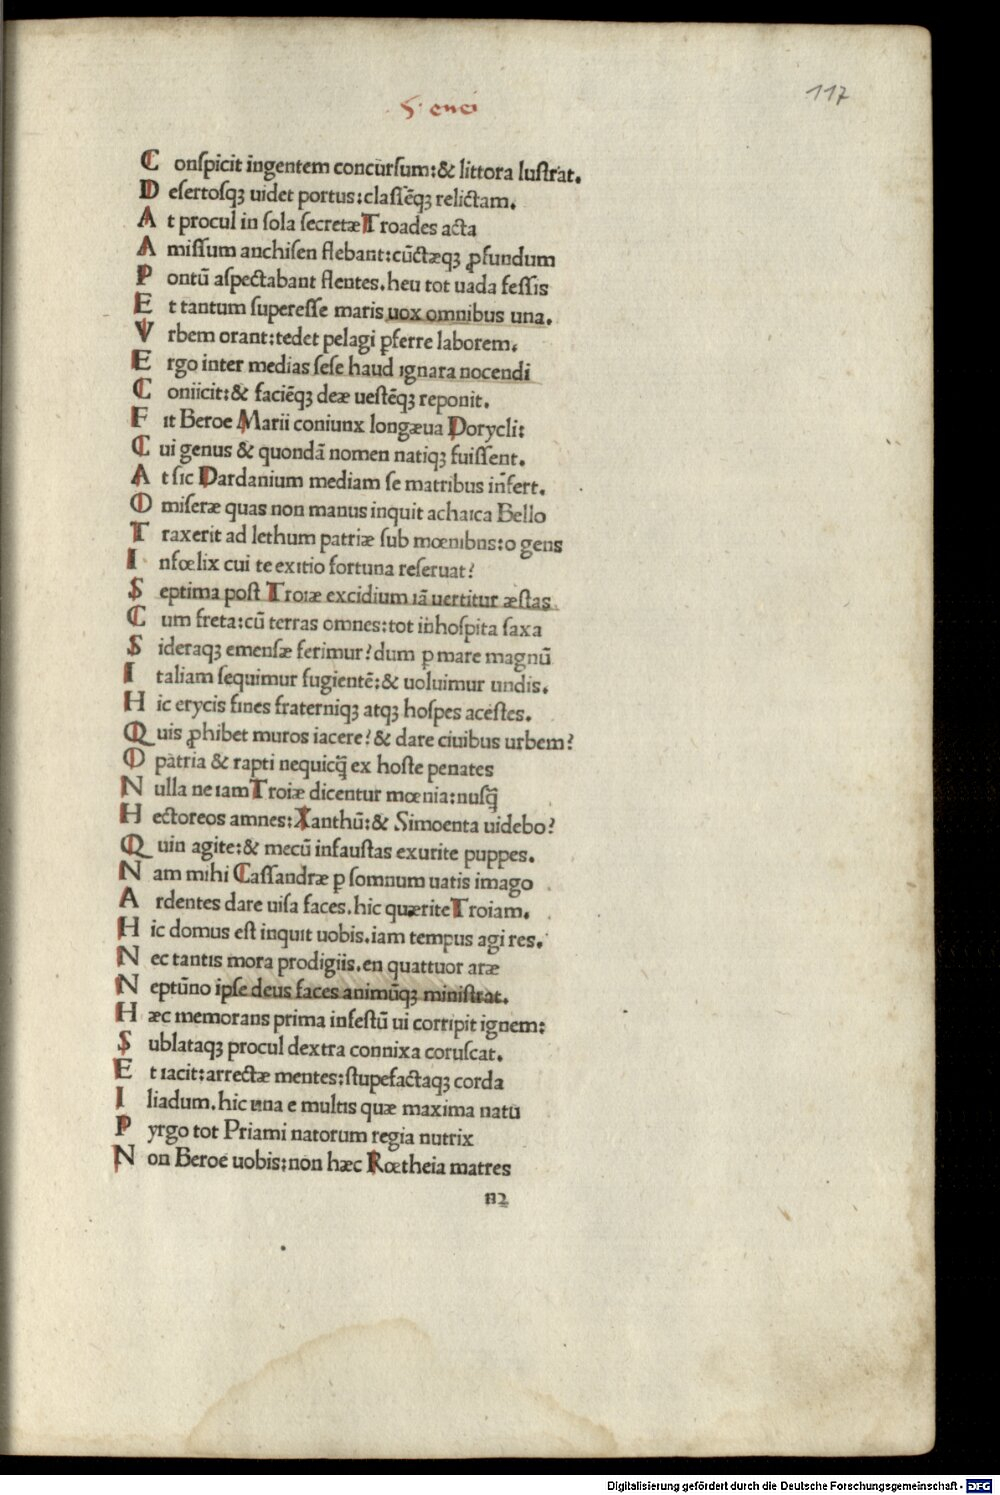 5. enei
117
C onſpicit ingentem concurſum:& littora luſtrat.
D eſertoſqꝫ uidet portus:claſſēqꝫ relictam.
A t procul in ſola ſecretæ Troades acta
A miſſum anchiſen flebant:cūctæqꝫ ꝓfundum
P ontū aſpectabant flentes.heu tot uada feſſis
E t tantum ſupereſſe maris uox omnibus una.
V rbem orant:tedet pelagi ꝑferre laborem.
E rgo inter medias ſeſe haud ignara nocendi
C oniicit:& faciēqꝫ deæ ueſtēqꝫ reponit.
F it Beroe Marii coniunx longæua Dorycli:
C ui genus & quondā nomen natiqꝫ fuiſſent.
A t ſic Dardanium mediam ſe matribus infert.
O miſeræ quas non manus inquit achaica Bello
T raxerit ad lethum patriæ ſub mœnibns:o gens
I nfœlix cui te exitio fortuna reſeruat?
S eptima poſt Troiæ excidium iā uertitur æſtas
C um freta:cū terras omnes:tot inhoſpita ſaxa
S ideraqꝫ emenſæ ferimur?dum ꝑ mare magnū
I taliam ſequimur fugientē:& uoluimur undis.
H ic erycis fines fraterniqꝫ atqꝫ hoſpes aceſtes.
Q uis ꝓhibet muros iacere?& dare ciuibus urbem?
O patria & rapti nequicq̄ ex hoſte penates
N ulla ne iam Troiæ dicentur mœnia:nuſq̄
H ectoreos amnes:Xanthū:& Simoenta uidebo?
Q uin agite:& mecū infauſtas exurite puppes.
N am mihi Caſſandræ ꝑ ſomnum uatis imago
A rdentes dare uiſa faces.hic quærite Troiam.
H ic domus eſt inquit uobis.iam tempus agi res.
N ec tantis mora prodigiis.en quattuor aræ
N eptūno ipſe deus faces animūqꝫ miniſtrat.
H æc memorans prima infeſtū ui corripit ignem:
S ublataqꝫ procul dextra connixa coruſcat.
E t iacit:arrectæ mentes:ſtupefactaqꝫ corda
I liadum.hic una e multis quæ maxima natu
P yrgo tot Priami natorum regia nutrix
N on Beroe uobis:non hæc Rœtheia matres
n2
Digitalisierung gefördert durch die Deutsche Forschungsgemeinschaft - DFG